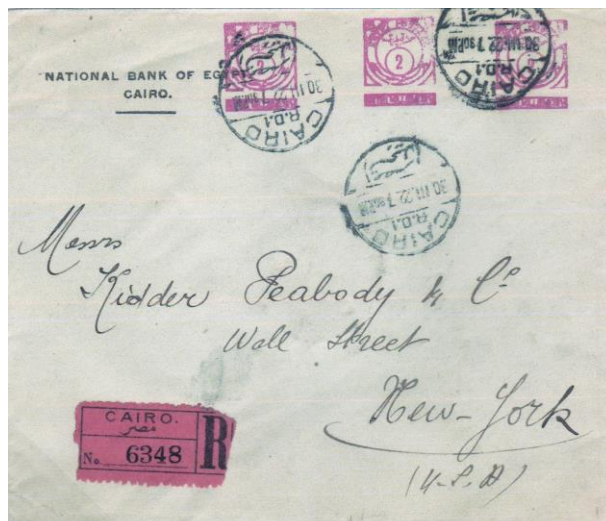 NATIONAL BANK OF EGYPT
CAIRO.
2
2
30 III.22.7 30PM
CAIRO
R.D.1
30 III.22.7 30PM
CAIRO
R.D.1
30 III.22.7 30PM
CAIRO
R.D.1
Messrs
Kidder Peabody & Co
Wall Street
New-York
(U.S.A)
CAIRO.
مصر
No. 6348
R